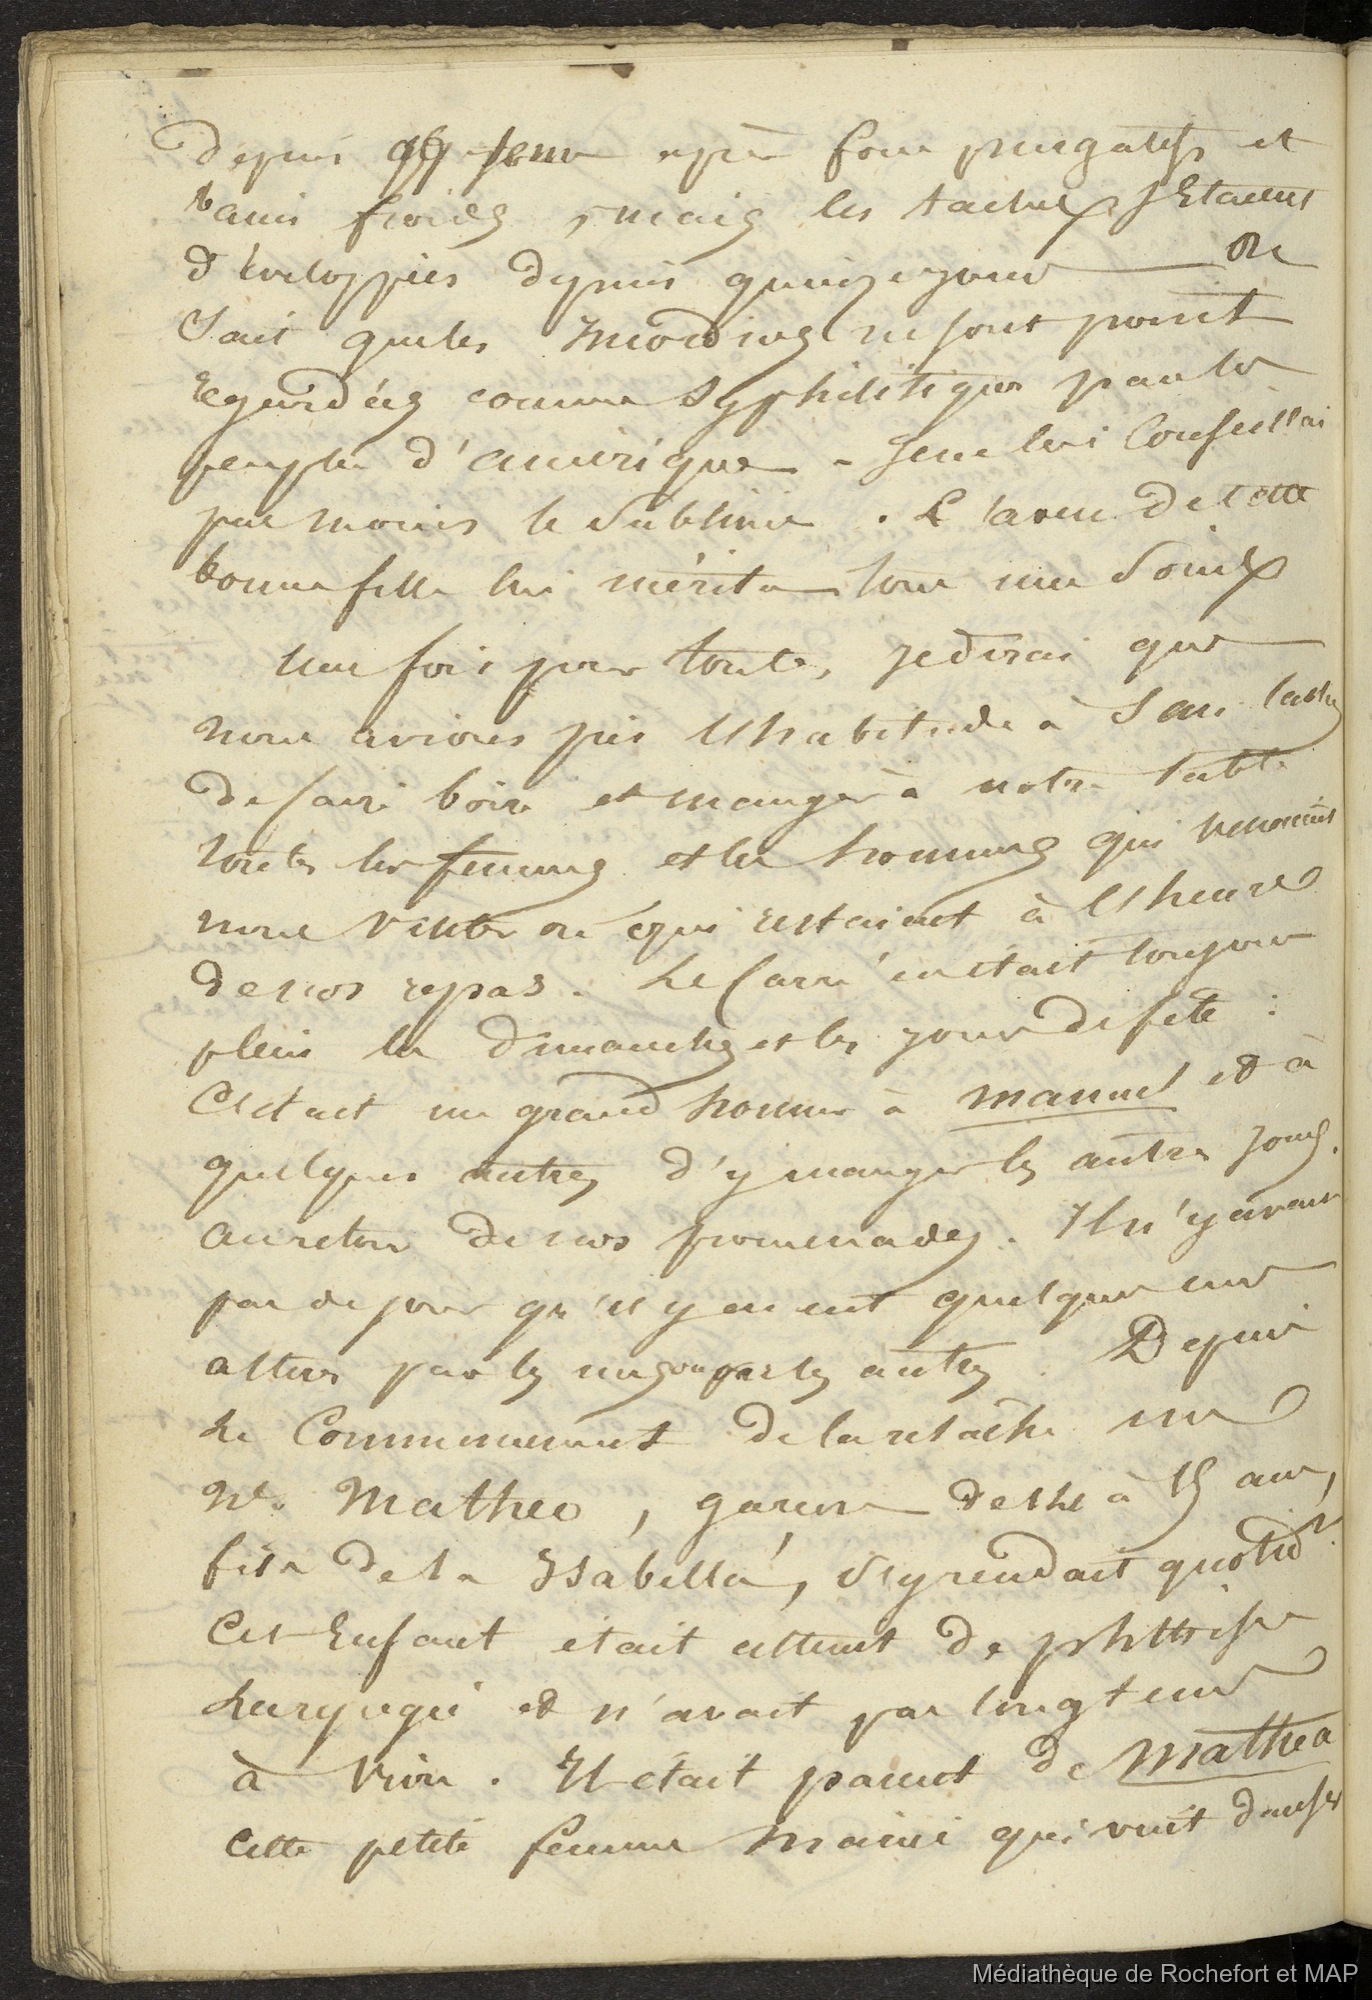 depuis qq tems après four purgatifs et
bains froids, mais les taches s'Etaient
développées depuis quinze jours — on
Sait que les mordives ne sont point
regardées comme syphilitiques par les
peuples d'amérique - je ne lui Conseillai
pas moins le Sublimé. L'aveu de cette
bonne fille lui mérita tous mes Soins
Une fois pour toutes, je dirai que
nous avions pris l'habitude à San Carlos
de faire boire et manger à notre table
toutes les femmes et les hommes qui venaient
nous visiter ou qui restaient à l'heure
de nos repas. Le Carré en était toujours
plein les dimanches et les jours de fête :
C'était un grand honneur à manuel et à
quelques autres d'y manger les autres jours.
au retour de nos promenades. Il n'y avait
pas de jour qu'il y en eut quelques uns
attirés par les uns ou par les autres. Depuis
le Commencement de la relache un
Né. Matheo, garçon de 14 à 15 ans,
fils de la Isabella, s'y rendait quotidt.
Cet Enfant était atteint de phthisie
Laryngée et n'avait pas longtems
à vivre. Il était parent de Mathea
cette petite femme mariée qui vint danser
Médiathèque de Rochefort et MAP